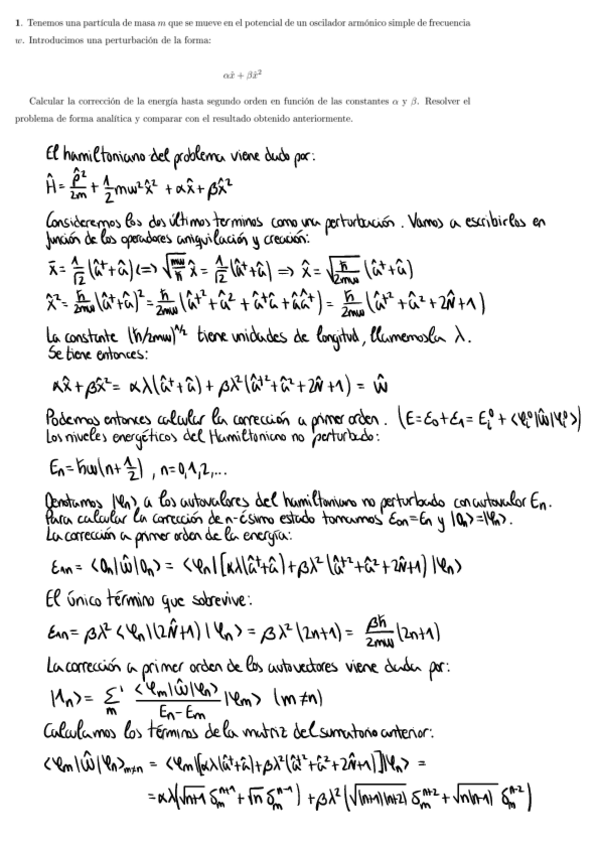 1. Tenemos una partícula de masa m que se mueve en el potencial de un oscilador armónico simple de frecuencia
w. Introducimos una perturbación de la forma:
αx̂ + βx̂²
Calcular la corrección de la energía hasta segundo orden en función de las constantes α y β. Resolver el
problema de forma analítica y comparar con el resultado obtenido anteriormente.
El hamiltoniano del problema viene dado por:
Ĥ = p̂²/2m + 1/2 mω²x̂² + αx̂ + βx̂²
Consideremos los dos últimos terminos como una perturbación. Vamos a escribirlos en
función de los operadores aniquilación y creación:
x̄ = 1/√2 (â⁺+â) <=> √(mω/ħ) x̂ = 1/√2 (â⁺+â) => x̂ = √(ħ/2mω) (â⁺+â)
x̂² = ħ/2mω (â⁺+â)² = ħ/2mω (â⁺² + â² + â⁺â + ââ⁺) = ħ/2mω (â⁺² + â² + 2N̂ + 1)
La constante (ħ/2mω)^1/2 tiene unidades de longitud, llamemosla λ.
Se tiene entonces:
αx̂ + βx̂² = αλ(â⁺+â) + βλ²(â⁺² + â² + 2N̂ + 1) = Ŵ
Podemos entonces calcular la corrección a primer orden. (E = ε₀ + ε₁ = Eᵢ⁰ + <φᵢ⁰|Ŵ|φᵢ⁰>)
Los niveles energéticos del Hamiltoniano no perturbado:
Eₙ = ħω(n + 1/2), n=0,1,2,...
Denotamos |φₙ> a los autovalores del hamiltoniano no perturbado con autovalor Eₙ.
Para calcular la corrección de n-ésimo estado tomamos ε₀ₙ = Eₙ y |0ₙ> = |φₙ>.
La corrección a primer orden de la energía:
ε₁ₙ = <0ₙ|Ŵ|0ₙ> = <φₙ|[αλ(â⁺+â) + βλ²(â⁺² + â² + 2N̂ + 1)|φₙ>
El único término que sobrevive:
ε₁ₙ = βλ² <φₙ|(2N̂+1)|φₙ> = βλ²(2n+1) = βħ/2mω (2n+1)
La corrección a primer orden de los autovectores viene dada por:
|1ₙ> = Σ'ₘ <φₘ|Ŵ|φₙ>/(Eₙ−Eₘ) |φₘ> (m≠n)
Calculamos los términos de la matriz del sumatorio anterior:
<φₘ|Ŵ|φₙ>ₘ≠ₙ = <φₘ|[αλ(â⁺+â)+βλ²(â⁺²+â²+2N̂+1)]|φₙ> =
= αλ(√(n+1) δₘⁿ⁺¹ + √n δₘⁿ⁻¹) + βλ²(√((n+1)(n+2)) δₘⁿ⁺² + √(n(n-1)) δₘⁿ⁻²)